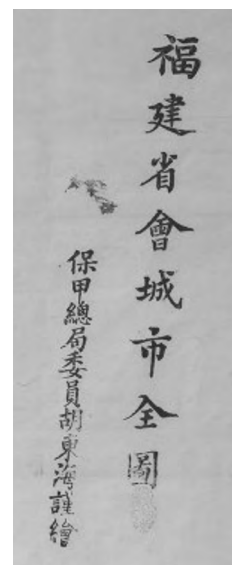 福建省會城市全圖
保甲總局委員胡東海謹繪